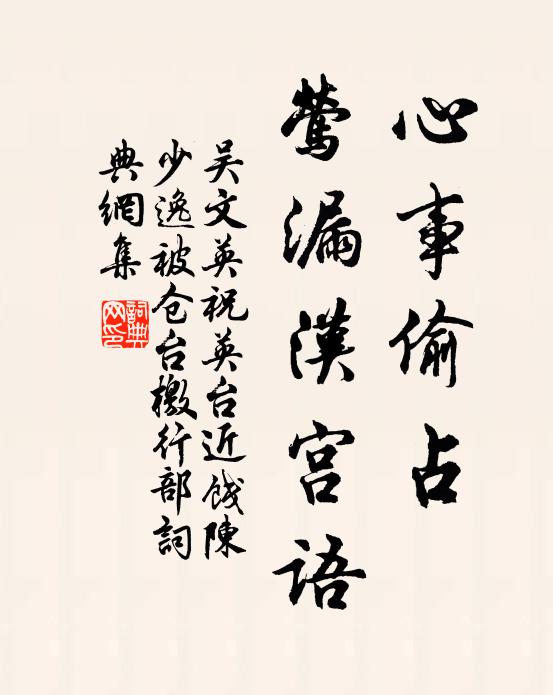 心事偷占
莺漏漢宫语
吴文英祝英台近餞陳
少逸被仓台檄行部詞
典網集
詞典
网印